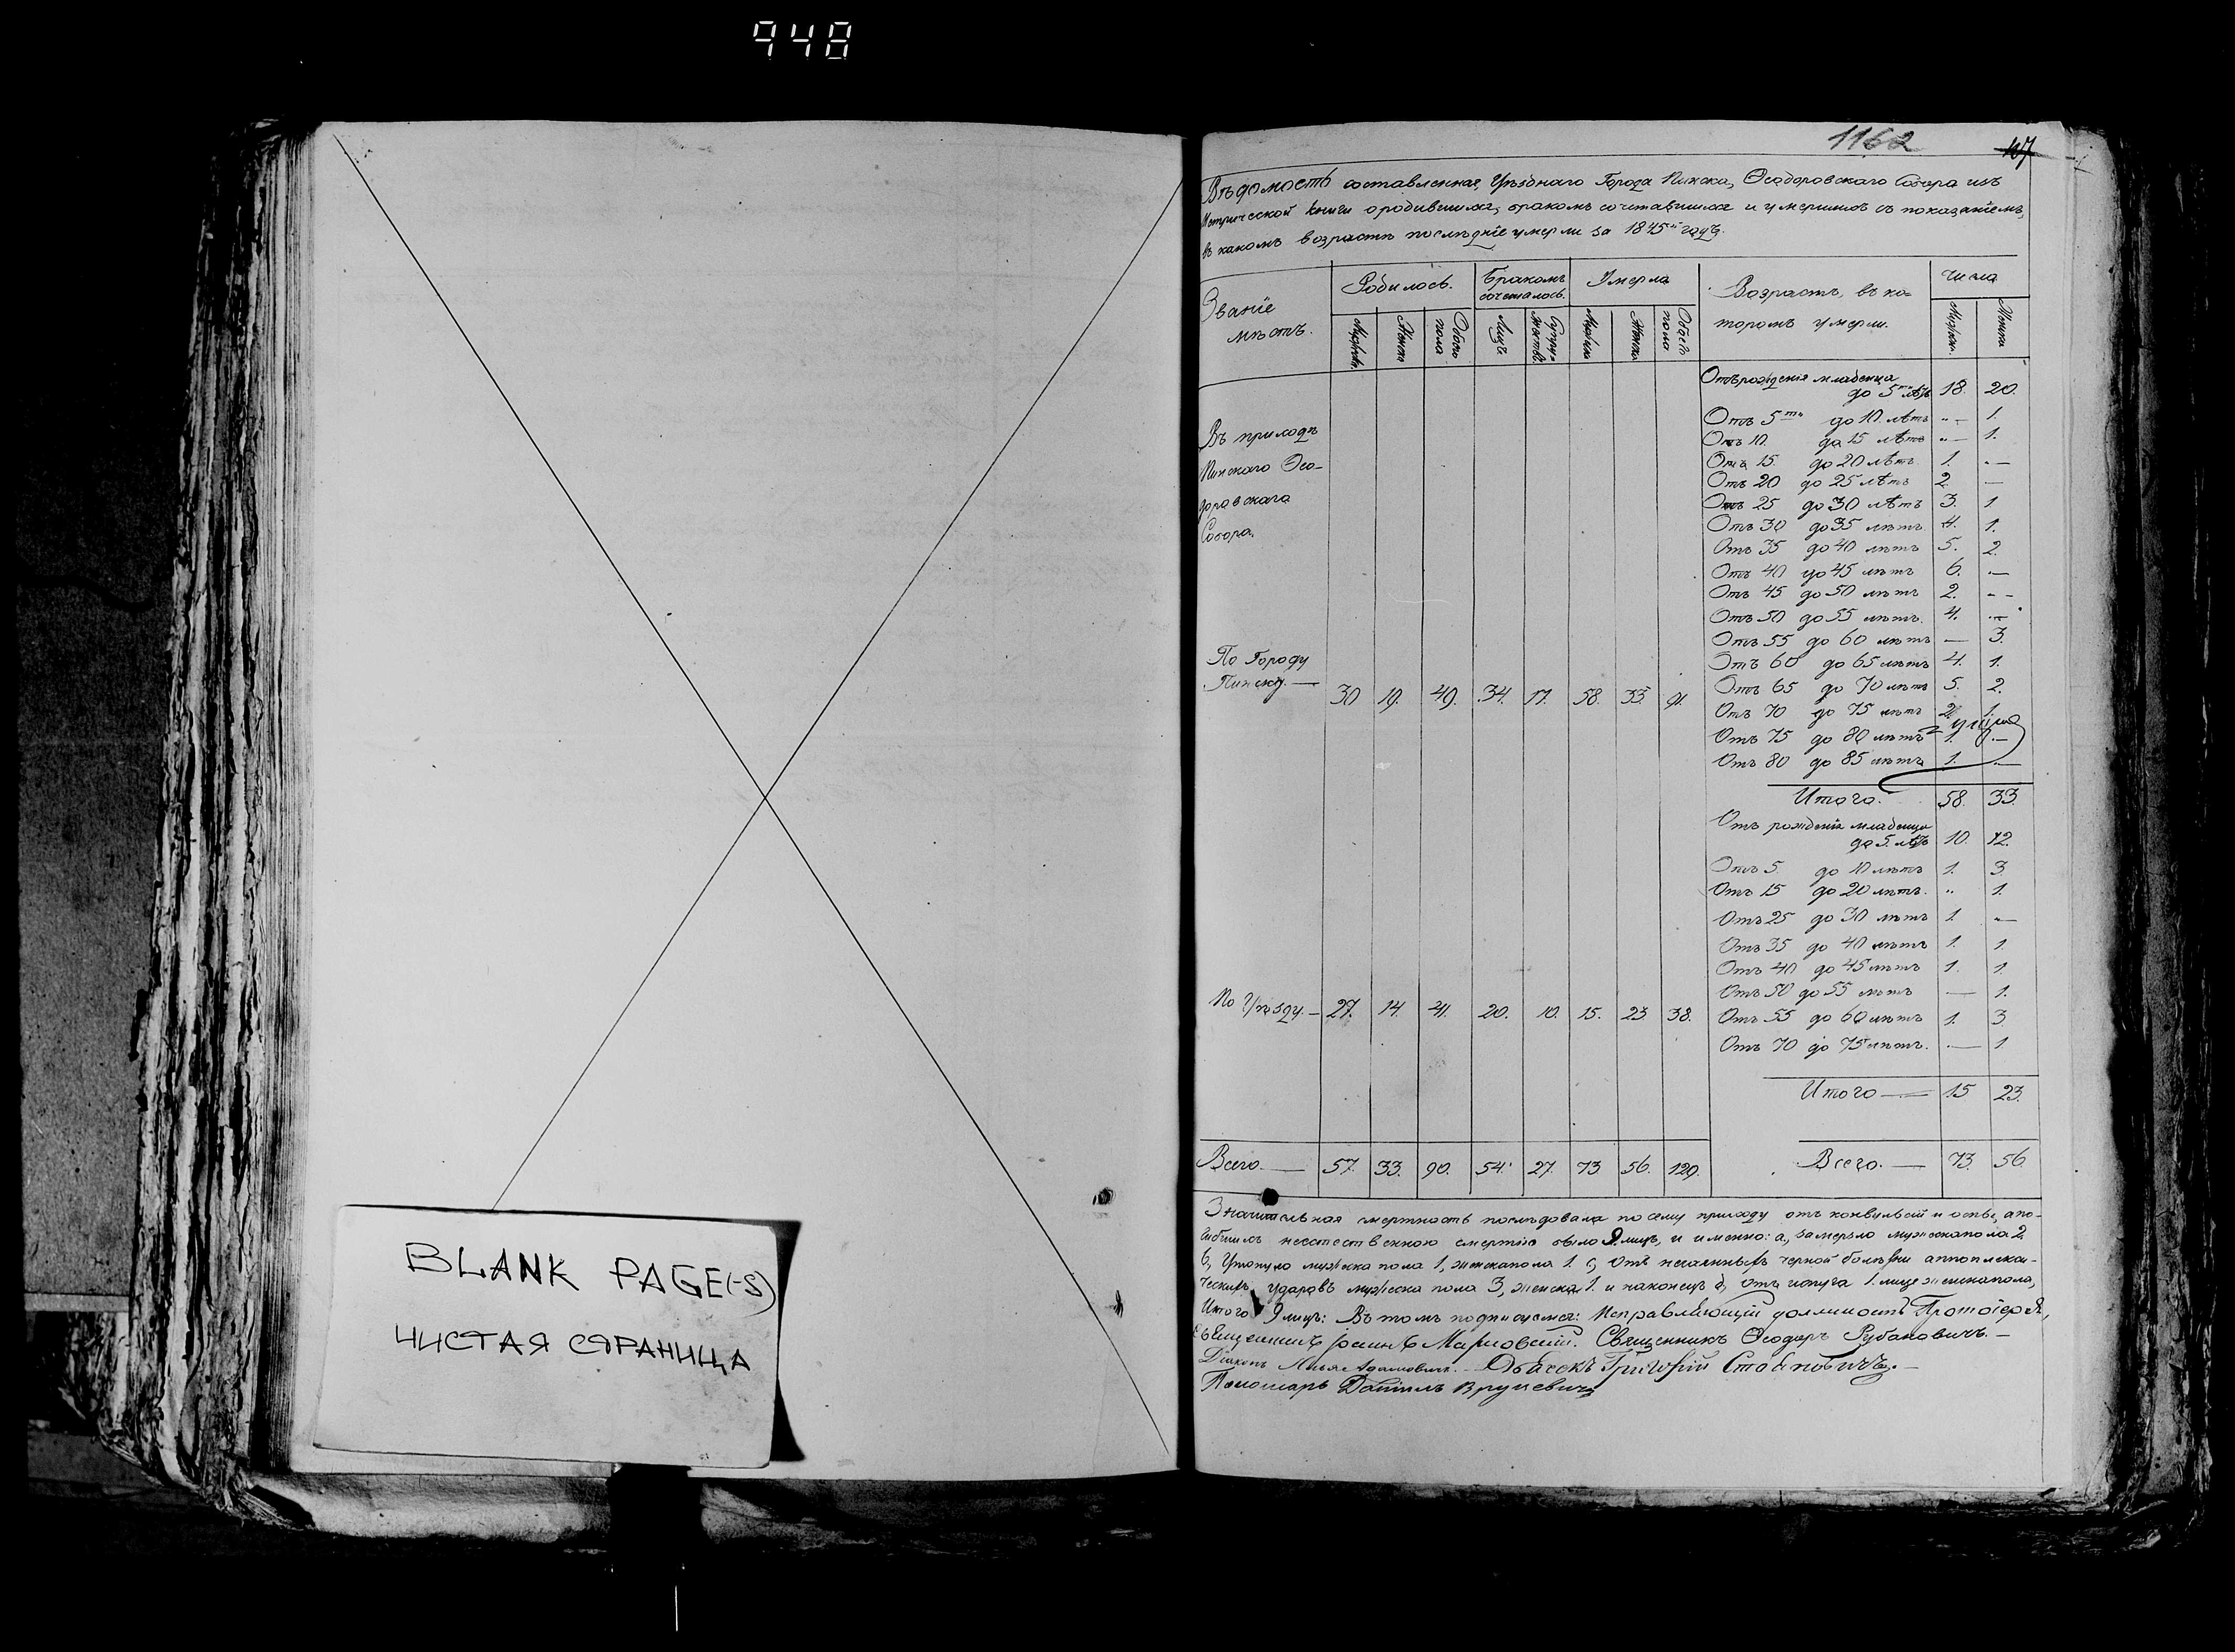 948
1162
107
Вѣдомость составленная Уѣзднаго Города Пинска, Ѳеодоровскаго Собора изъ
Метрической книги о родившихся, бракомъ сочетавшихся и умершихъ съ показаніемъ,
въ какомъ возрастѣ послѣдніе умерли за 1845й годъ.
Званіе мѣстъ. Родилось. Бракомъ сочеталось. Умерло Возрастъ, въ ко-
торомъ умерли. Число
Мужеск. Женск. Обоего пола Лицъ Супружествъ Мужеск. Женск. Обоего пола Мужеск. Женск.
Отъ рожденія младенца
до 5ти лѣтъ 18. 20.
Отъ 5ти до 10 лѣтъ „— 1.
Въ приходѣ Отъ 10 до 15 лѣтъ „— 1.
Пинскаго Ѳео- Отъ 15 до 20 лѣтъ 1. „—
Отъ 20 до 25 лѣтъ 2. —
доровскаго Отъ 25 до 30 лѣтъ 3. 1
Собора. Отъ 30 до 35 лѣтъ 4. 1.
Отъ 35 до 40 лѣтъ 5. 2.
Отъ 40 до 45 лѣтъ 6. „—
Отъ 45 до 50 лѣтъ 2. - -
Отъ 50 до 55 лѣтъ. 4. „—
Отъ 55 до 60 лѣтъ — 3.
По Городу Отъ 60 до 65 лѣтъ 4. 1.
Пинску. — 30 19. 49. 34. 17. 58. 33 91. Отъ 65 до 70 лѣтъ 5. 2.
Отъ 70 до 75 лѣтъ 2. 1.
Отъ 75 до 80 лѣтъ 1. „—
Отъ 80 до 85 лѣтъ 1. „—
Итого. 58. 33.
Отъ рожденія младенца
до 5. лѣтъ 10. 12.
Отъ 5 до 10 лѣтъ 1. 3
Отъ 15 до 20 лѣтъ. „ 1.
Отъ 25 до 30 лѣтъ 1. „—
Отъ 35 до 40 лѣтъ 1. 1.
Отъ 40 до 45 лѣтъ 1. 1.
Отъ 50 до 55 лѣтъ — 1.
По Уѣзду — 27. 14. 41. 20. 10. 15. 23 38. Отъ 55 до 60 лѣтъ 1. 3
Отъ 70 до 75 лѣтъ. — 1
Итого — 15 23.
Всего. — 57. 33. 90. 54. 27. 73 56. 129. Всего. — 73. 56
Значительная смертность послѣдовала по сему приходу отъ конвульсій и оспы, а по-
гибшихъ неестественною смертію было 9 лицъ, и именно: а, замерзло мужеска пола 2
б, Утонуло мужеска пола 1, женска пола 1. с, отъ черной болѣзни апоплекси-
ческихъ ударовъ мужеска пола 3, женска 1. и наконецъ д, отъ испуга 1. лице женска пола,
Итого 9 лицъ: Въ томъ подписуемся: Исправляющій должность Протоіерея,
Священникъ Іоаннъ Марковскій. Священникъ Ѳеодоръ Рубановичъ. —
Діаконъ Илья Адамовичъ. — Дьячекъ Григорій Стоянович. —
Пономарь Даніилъ Вруцевичъ
BLANK PAGE(-S)
ЧИСТАЯ СТРАНИЦА